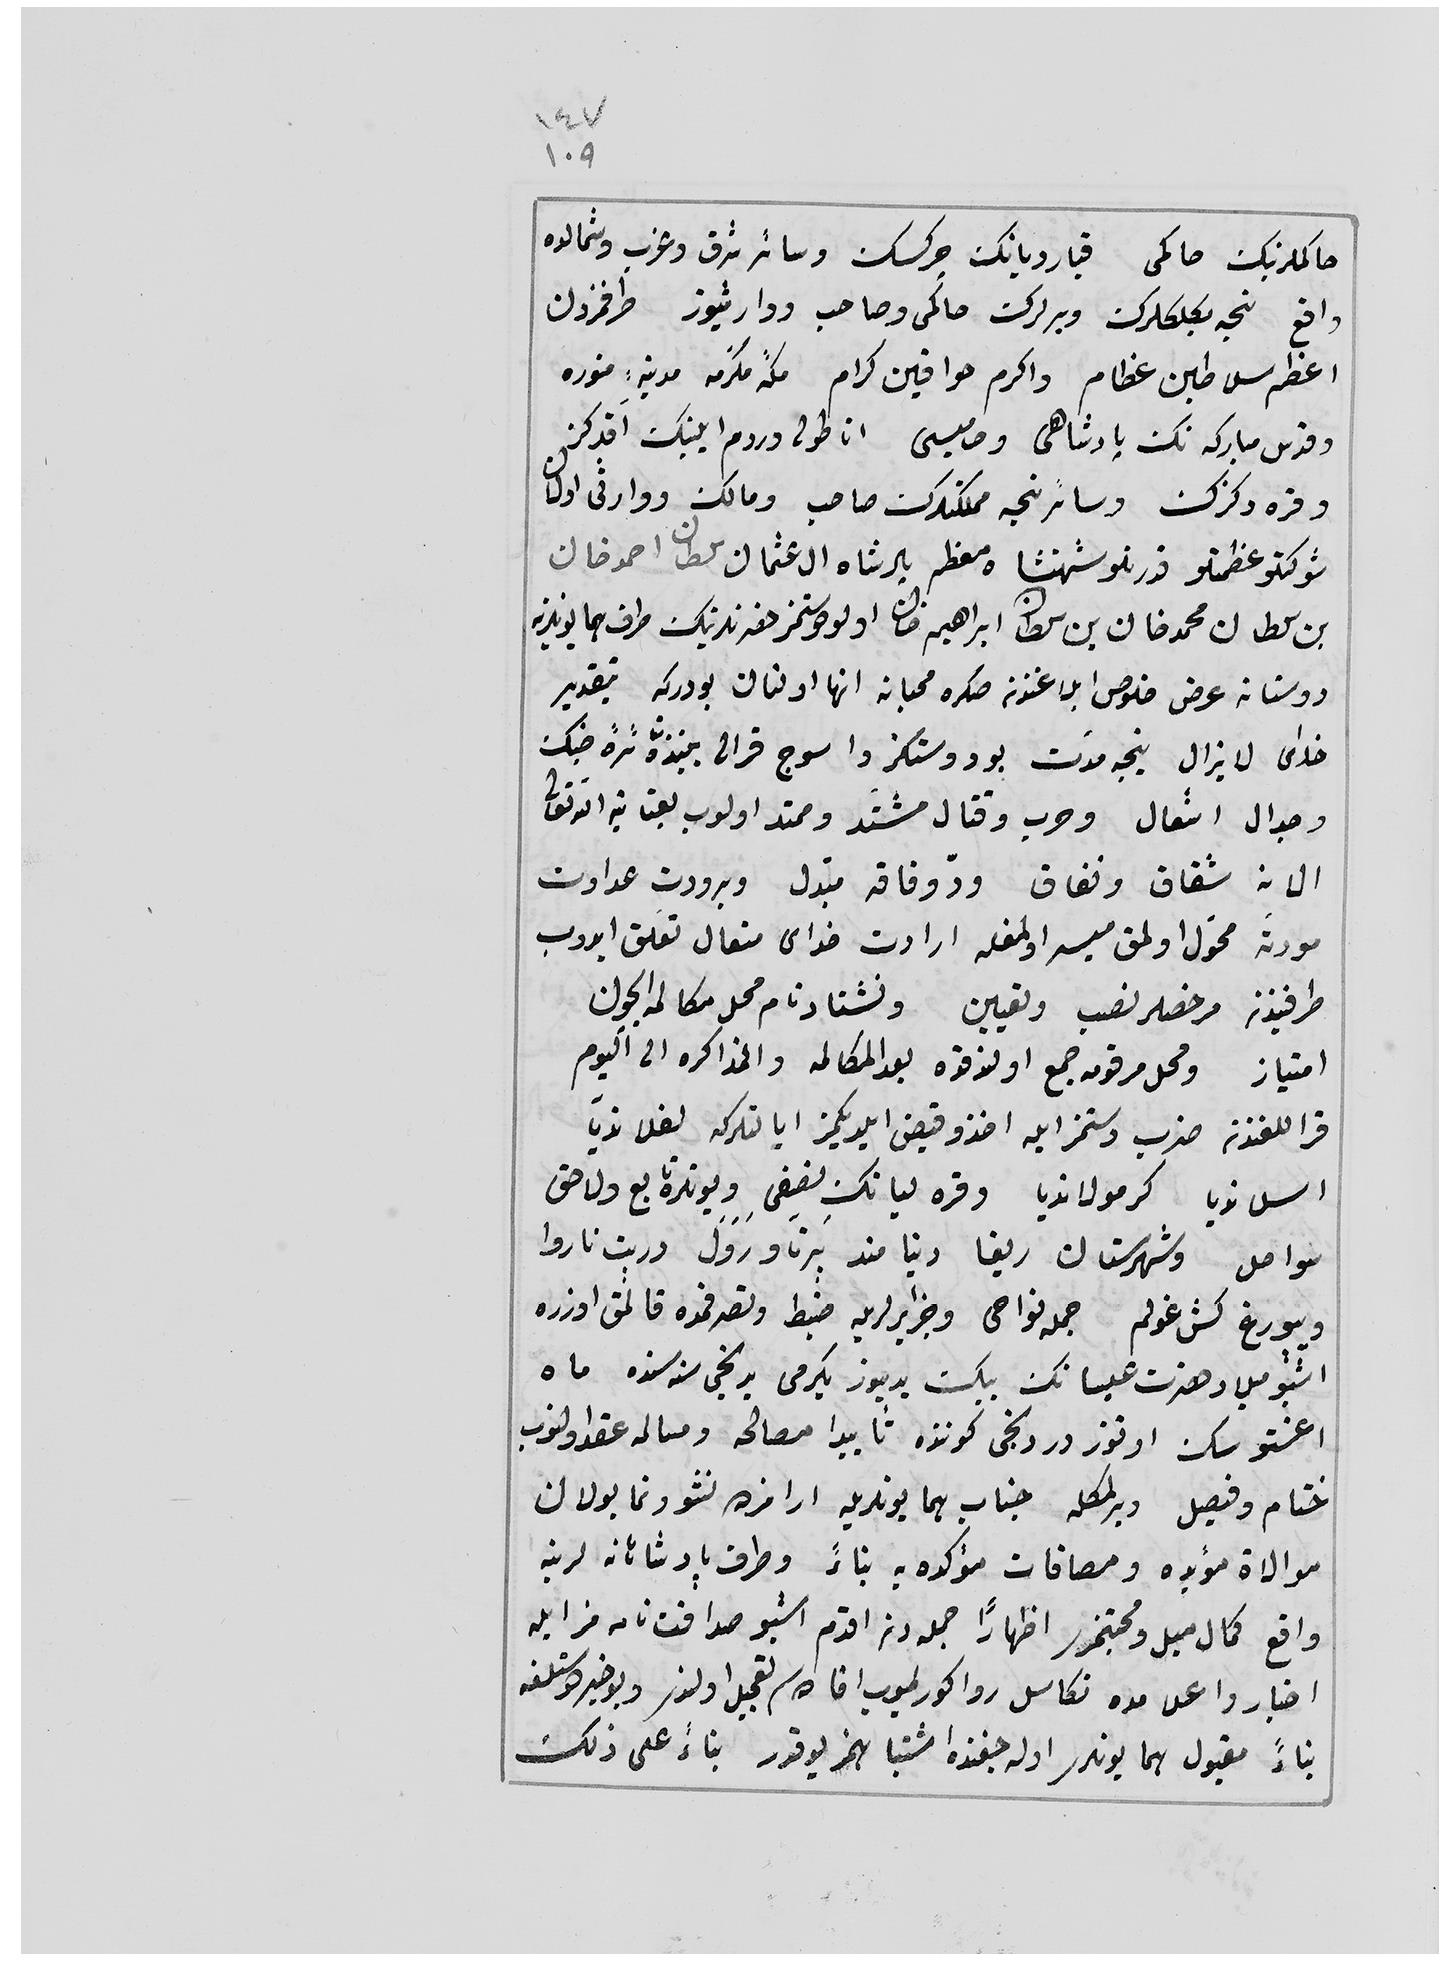 ١٤٧
١٠٩
حاكملرينك حاكمى قباردیانك چركسك وسائر شرق وغرب وشمالده
واقع نیجه بكلكلرك ویرلرك حاكمى وصاحب ووارثیوز طرفمزدن
اعظم سلاطین عظام واكرم خواقین كرام مكهٔ مكرمه مدینهٔ منوره
وقدس مباركه نك پادشاهى وحامیسى اناطولى وروم ایلینك آقدكز
وقره دكزك وسائر نیجه مملكتلرك صاحب ومالك ووارثى اولان
شوكتلو عظمتلو قدرتلو شهنشاه معظم پادشاه ال عثمان سلطان احمد خان
بن سلطان محمد خان بن سلطان ابراهیم خان اولو دوستمز حضرتلرینك طرف همایونلرینه
دوستانه عرض خلوص ابلاغندن صكره محبانه انها اولنان بودركه بتقدیر
خداى لایزال نیجه مدت بو دوستكز و اسوج قرالى بیننده نائرهٔ جنك
وجدال اشعال وحرب وقتال مشتد وممتد اولوب بعنایة الله تعالى
الان شقاق ونفاق ودّ وفاقه مبدل وبرودت عداوت
مودته محول اولمق میسر اولمغله ارادت خداى متعال تعلق ایدوب
طرفیندن مرخصلر نصب وتعیین ونشتاد نام محل مكالمه ایچون
امتیاز ومحل مرقومه جمع اولندقده بعد المكالمه والمذاكره الى الیوم
قراللغندن ضرب دستمز ایله اخذ وقبض ایلدیكمز ایالتلركه لفلاندیا
اسلاندیا كرمولاندیا وقره لیانك نصفى وبونلره تابع ولاحق
سواحل وشهرستان ریغا دینامند پرناو رَوَل دربت ناروا
ویبورغ كش غولم جمله نواحى وجزایرلریله ضبط وتصرفمده قالمق اوزره
اشبو میلاد حضرت عیسانك بیك یدیوز یكرمى برنجى سنه سنده ماه
اغستوسك اوتوز دردنجى كوننده تأبیدا مصالحه ومسالمه عقد اولنوب
ختام وفیصل ویرلمكله جناب همایونلریله ارامزده نشو ونما بولان
موالاة مؤبده ومصافات مؤكده یه بناءً وطرف پادشاهانه لرینه
واقع كمال میل ومحبتمزى اظهارًا جمله دن اقدم اشبو صداقت نامه مز ایله
اخبار واعلامده تكاسل روا كورلمیوب افاده سى تعجیل اولندى وبو خیر دوستلغه
بناءً مقبول همایونلرى اوله جغنده اشتباهمز یوقدر بناءً على ذلك